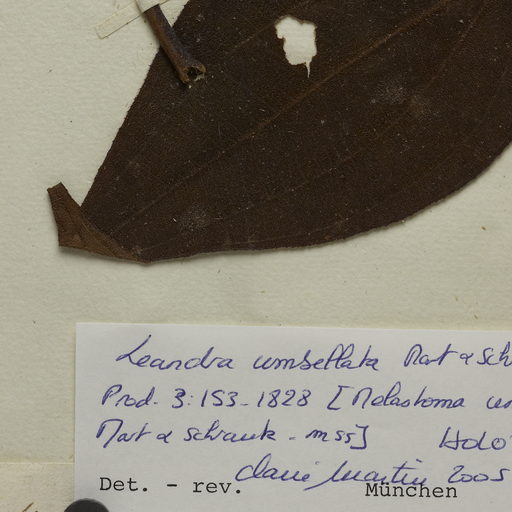 Leandra umbellata Mart & Sch
Prod. 3: 153-1828 [Melastoma um
Mart & Schrank - mss] HOLO
Martin 2005
Det. - rev. München